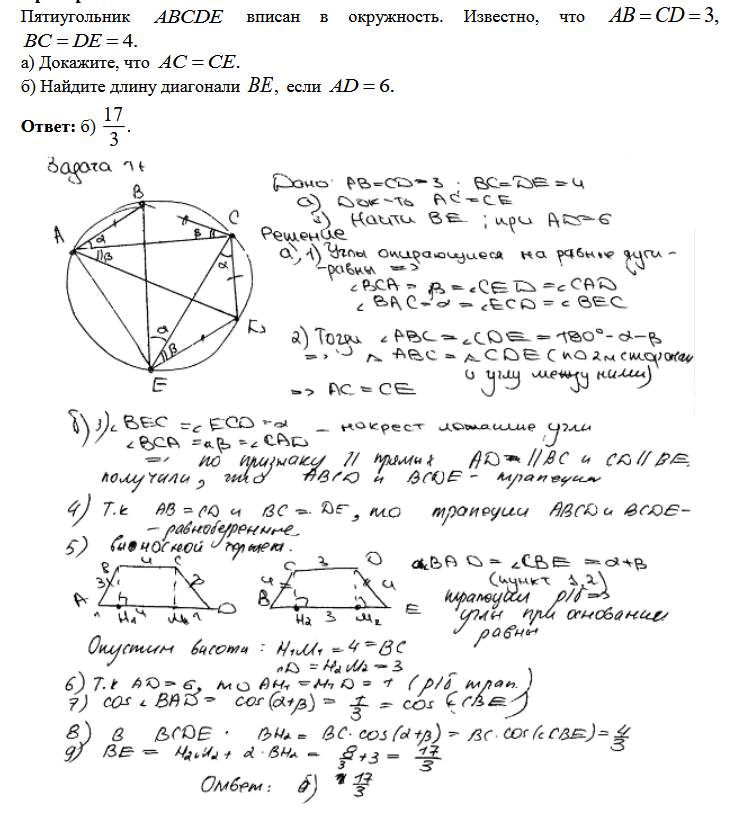 Пятиугольник ABCDE вписан в окружность. Известно, что AB = CD = 3,
BC = DE = 4.
а) Докажите, что AC = CE.
б) Найдите длину диагонали BE, если AD = 6.
Ответ: б) 17/3.
Задача
Дано: AB=CD=3; BC=DE=4
а) Док-ть AC=CE
Найти BE; при AD=6
Решение
B
A
C
E
α
β
β
α
α
β
а) 1) Углы опирающиеся на равные дуги -
-равны =>
∠BCA = β = ∠CED = ∠CAD
∠BAC = α = ∠ECD = ∠BEC
2) Тогда ∠ABC = ∠CDE = 180°-α-β
=> △ABC = △CDE (по 2м сторонам
и углу между ними)
=> AC = CE
б) 3) ∠BEC = ∠ECD = α - накрест лежащие углы
∠BCA = β = ∠CAD
=> по признаку // прямых AD // BC и CD // BE,
получили, что ABCD и BCDE - трапеции
4) Т.к AB = CD и BC = DE, то трапеции ABCD и BCDE -
- равнобедренные
5) выносной чертеж.
B 4 C
3
A H₁ 4 M₁ 1 D
C 3 D
4 4
B H₂ 3 M₂ E
∠BAD = ∠CBE = α+β
(пункт 1,2)
трапеции р/б =>
углы при основании
равны
Опустим высоты: H₁M₁ = 4 = BC
CD = H₂M₂ = 3
6) Т.к AD = 6, то AH₁ = M₁D = 1 (р/б трап.)
7) cos ∠BAD = cos(α+β) = 1/3 = cos(∠CBE)
8) В BCDE. BH₂ = BC·cos(α+β) = BC·cos(∠CBE) = 4/3
9) BE = H₂M₂ + 2·BH₂ = 8/3 + 3 = 17/3
Ответ: б) 17/3